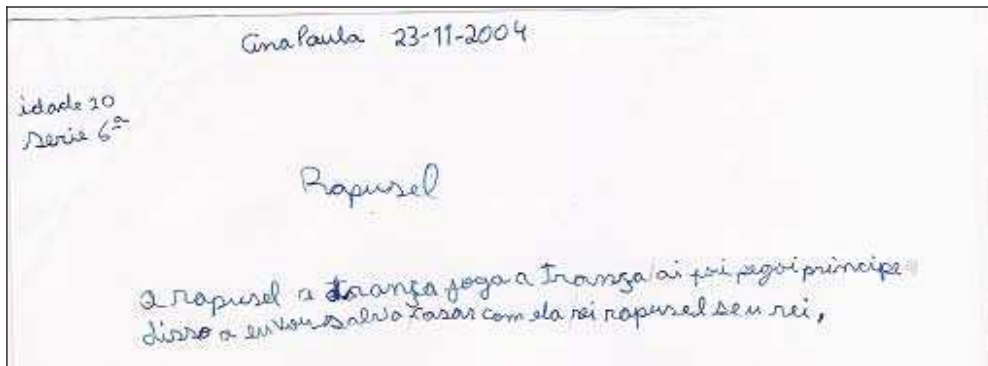 Ana Paula 23-11-2004
idade 20
serie 6ª
Rapusel
a rapusel a trança joga a trança ai foi pegoi principe
disso a eu vou salva casar com ela rei rapusel seu rei,